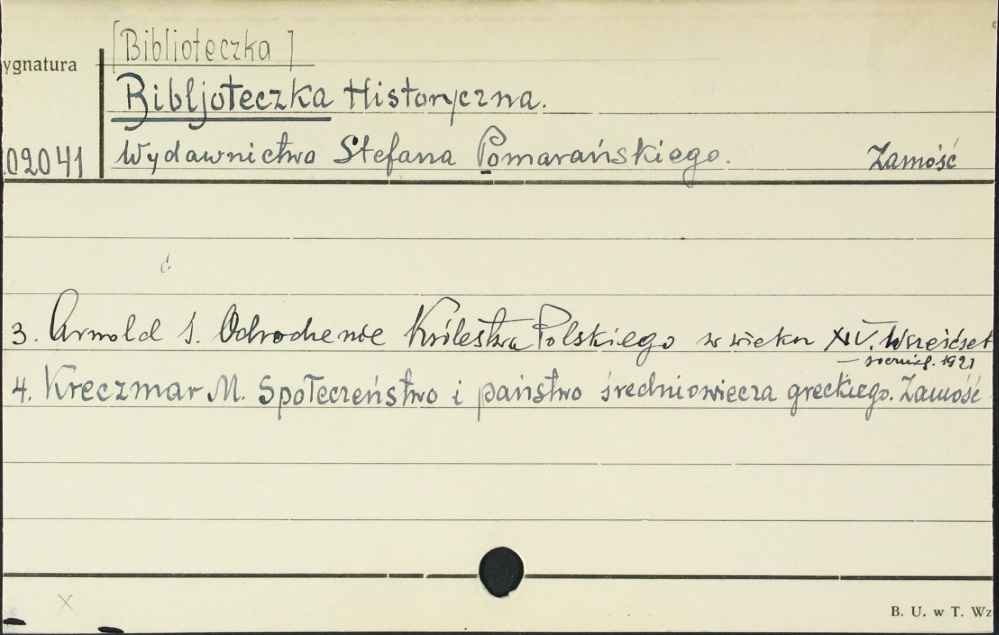 [Biblioteczka]
ygnatura
Bibljoteczka Historyczna.
02041
Wydawnictwo Stefana Pomarańskiego. Zamość
3. Arnold S. Odrodzenie Królestwa Polskiego w wieku XIV. W sześćset
— 1921
4. Kreczmar M. Społeczeństwo i państwo średniowiecza greckiego. Zamość
B. U. w T. Wz